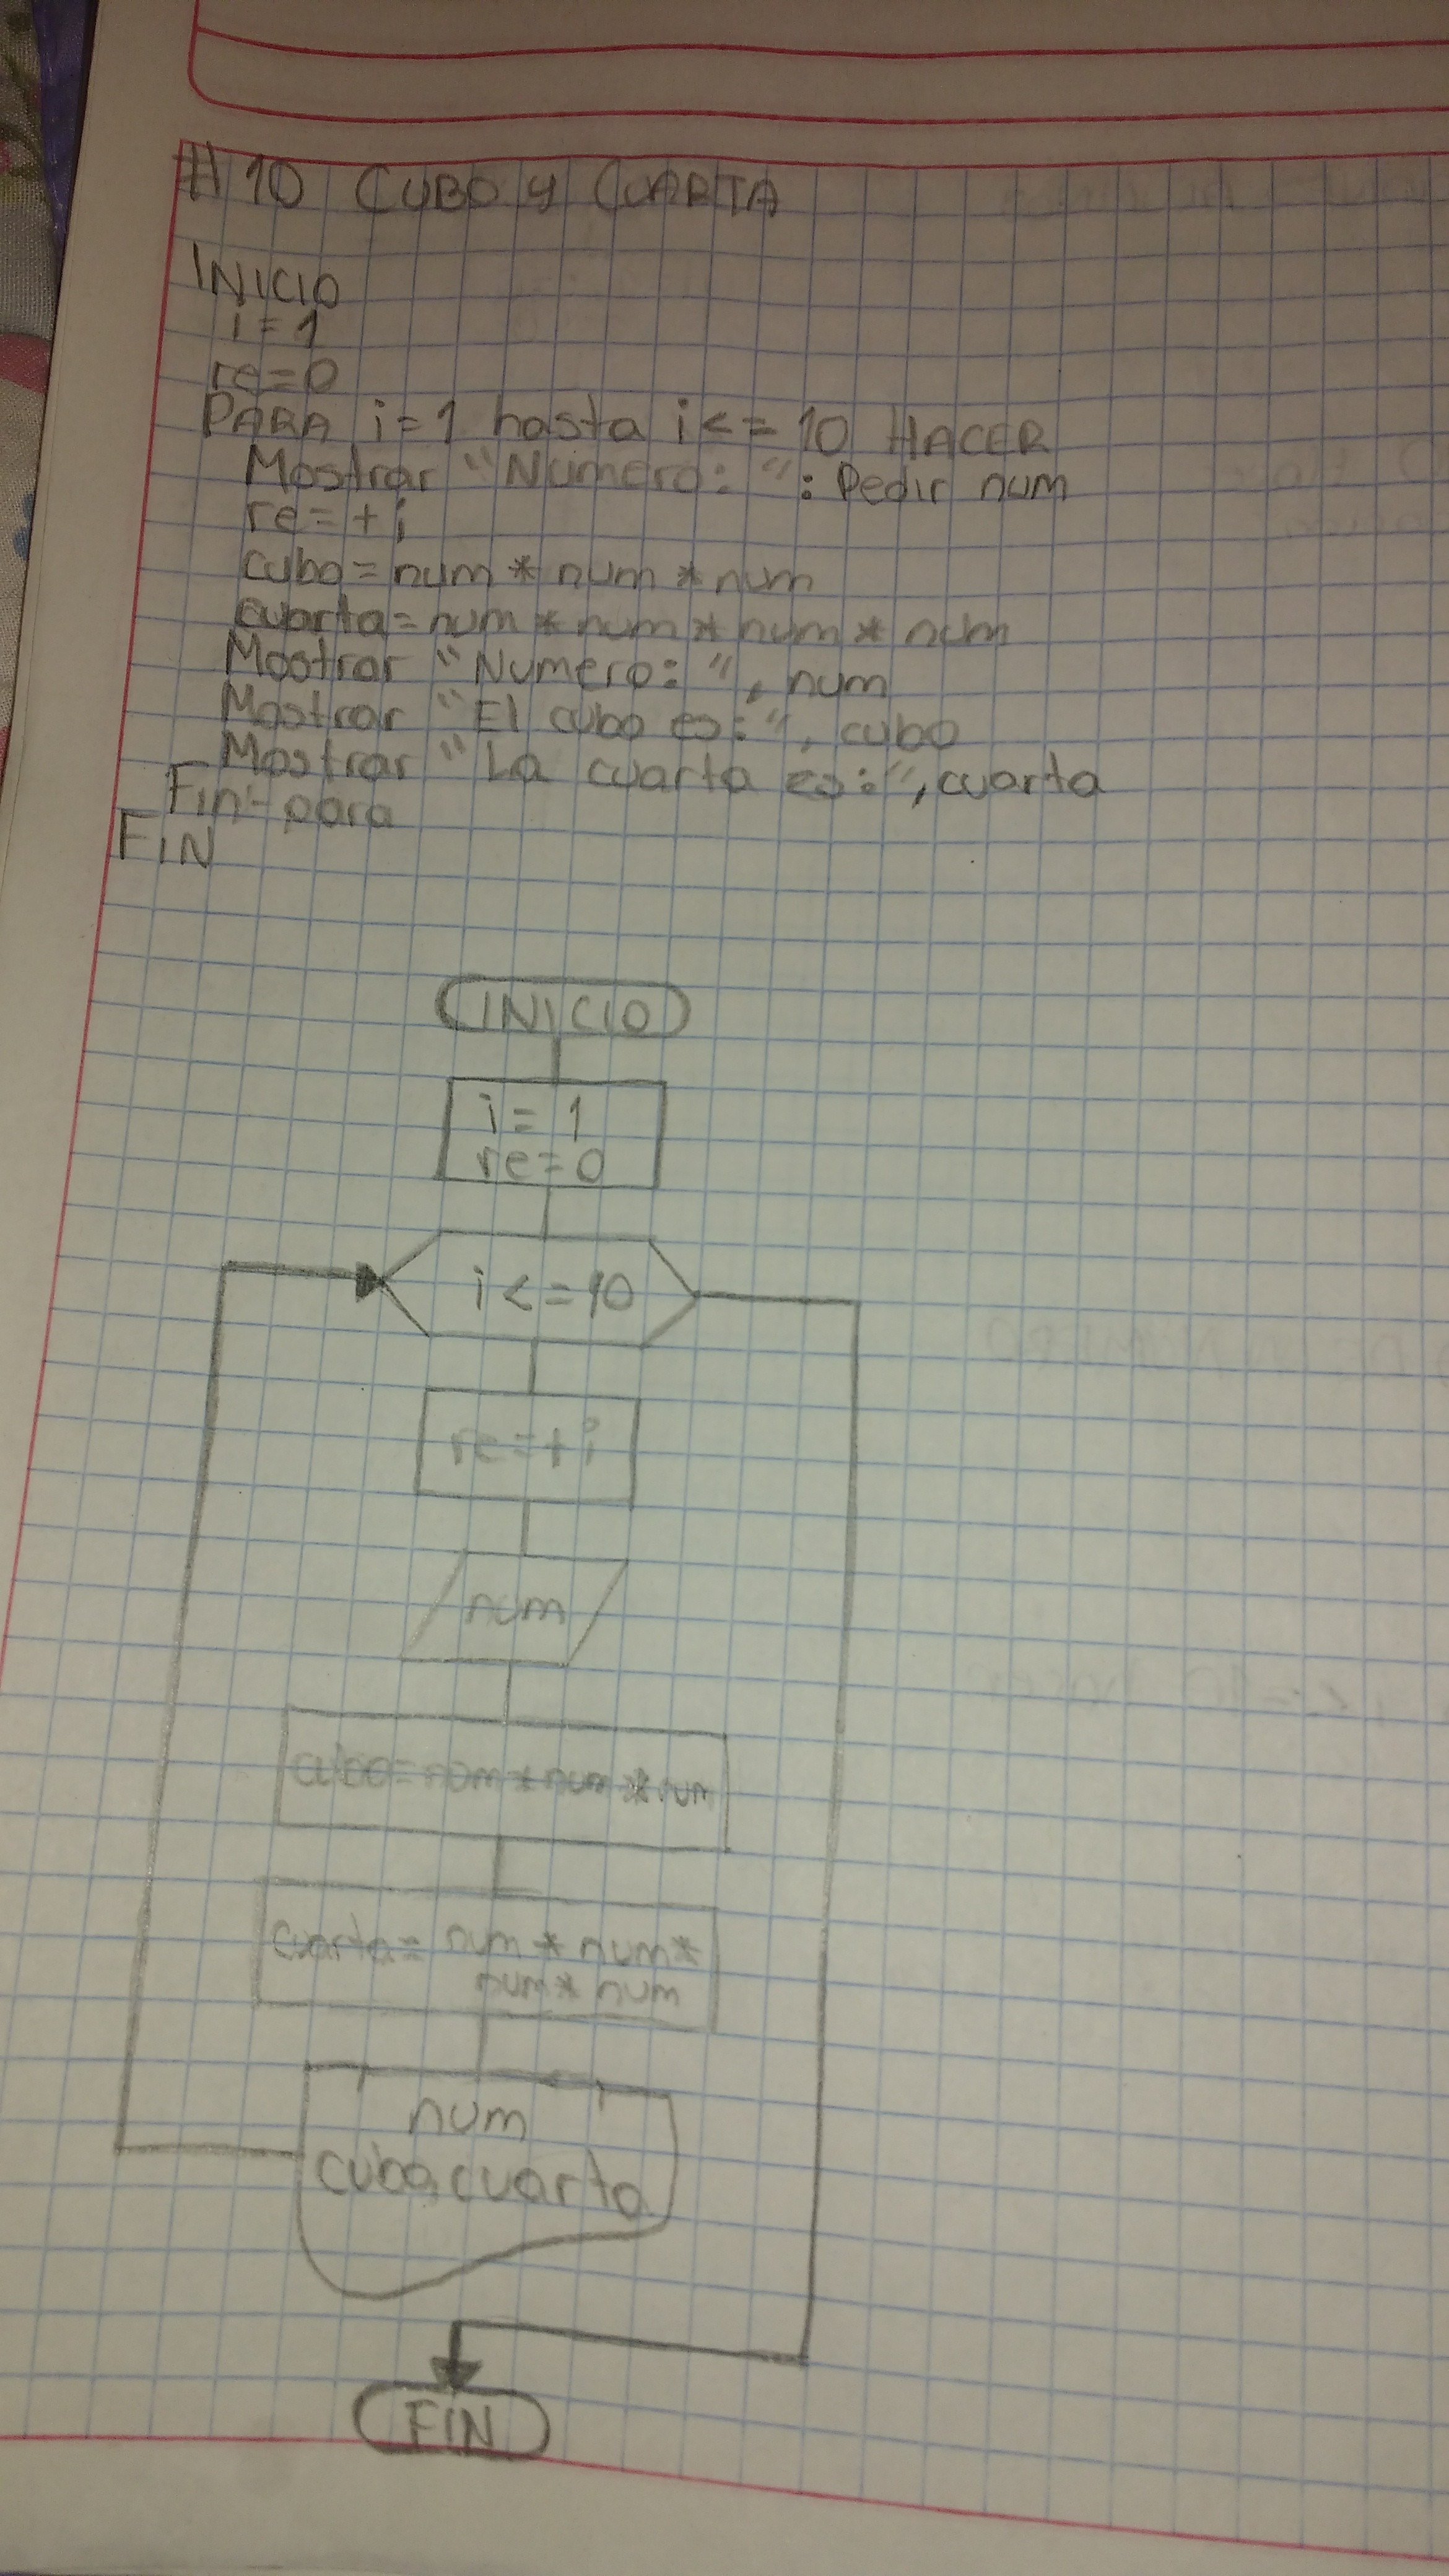 #10 CUBO y CUARTA
INICIO
i=1
re=0
PARA i=1 hasta i<=10 HACER
Mostrar "Numero: ": Pedir num
re=+i
cubo=num*num*num
cuarta=num*num*num*num
Mostrar "Numero: ", num
Mostrar "El cubo es:", cubo
Mostrar "La cuarta es:", cuarta
Fin-para
FIN
INICIO
i=1
re=0
i<=10
re=+i
num
cubo=num*num*num
cuarta=num*num*
num*num
num
cubo,cuarta
FIN